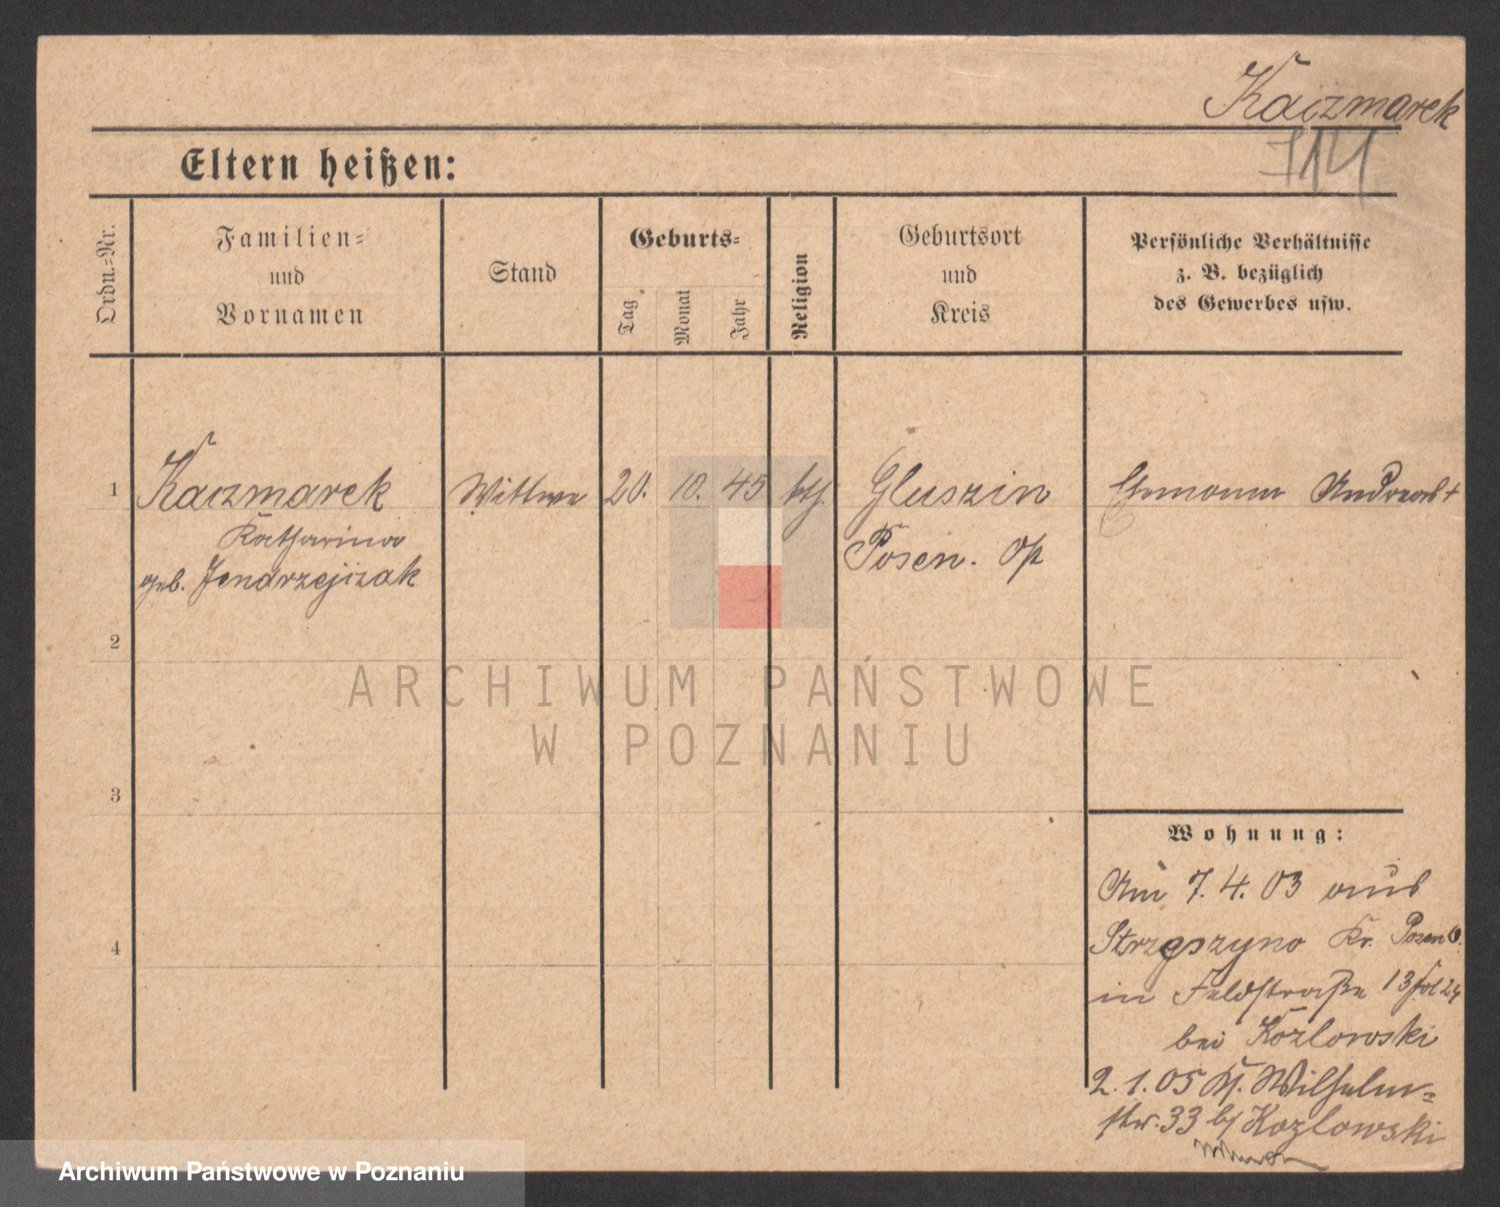 Kaczmarek
714
Eltern heißen:
Ordn.=Nr.
Familien=
und
Vornamen
Stand
Geburts=
Tag.
Monat
Jahr
Religion
Geburtsort
und
Kreis
Persönliche Verhältnisse
z. B. bezüglich
des Gewerbes usw.
1 Kaczmarek Wittwe 20. 10. 45 kth. Gluszin Ehemann Andreas +
Katharina Posen. Op
geb. Jendrzejizak
2
3
4
Wohnung:
Am 7. 4. 03 aus
Strzeszyno Kr. Posen O.
in Feldstraße 13
bei Kozlowski
2. 1. 05 Wilhelm=
str. 33 b/ Kozlowski
ARCHIWUM PAŃSTWOWE
W POZNANIU
Archiwum Państwowe w Poznaniu